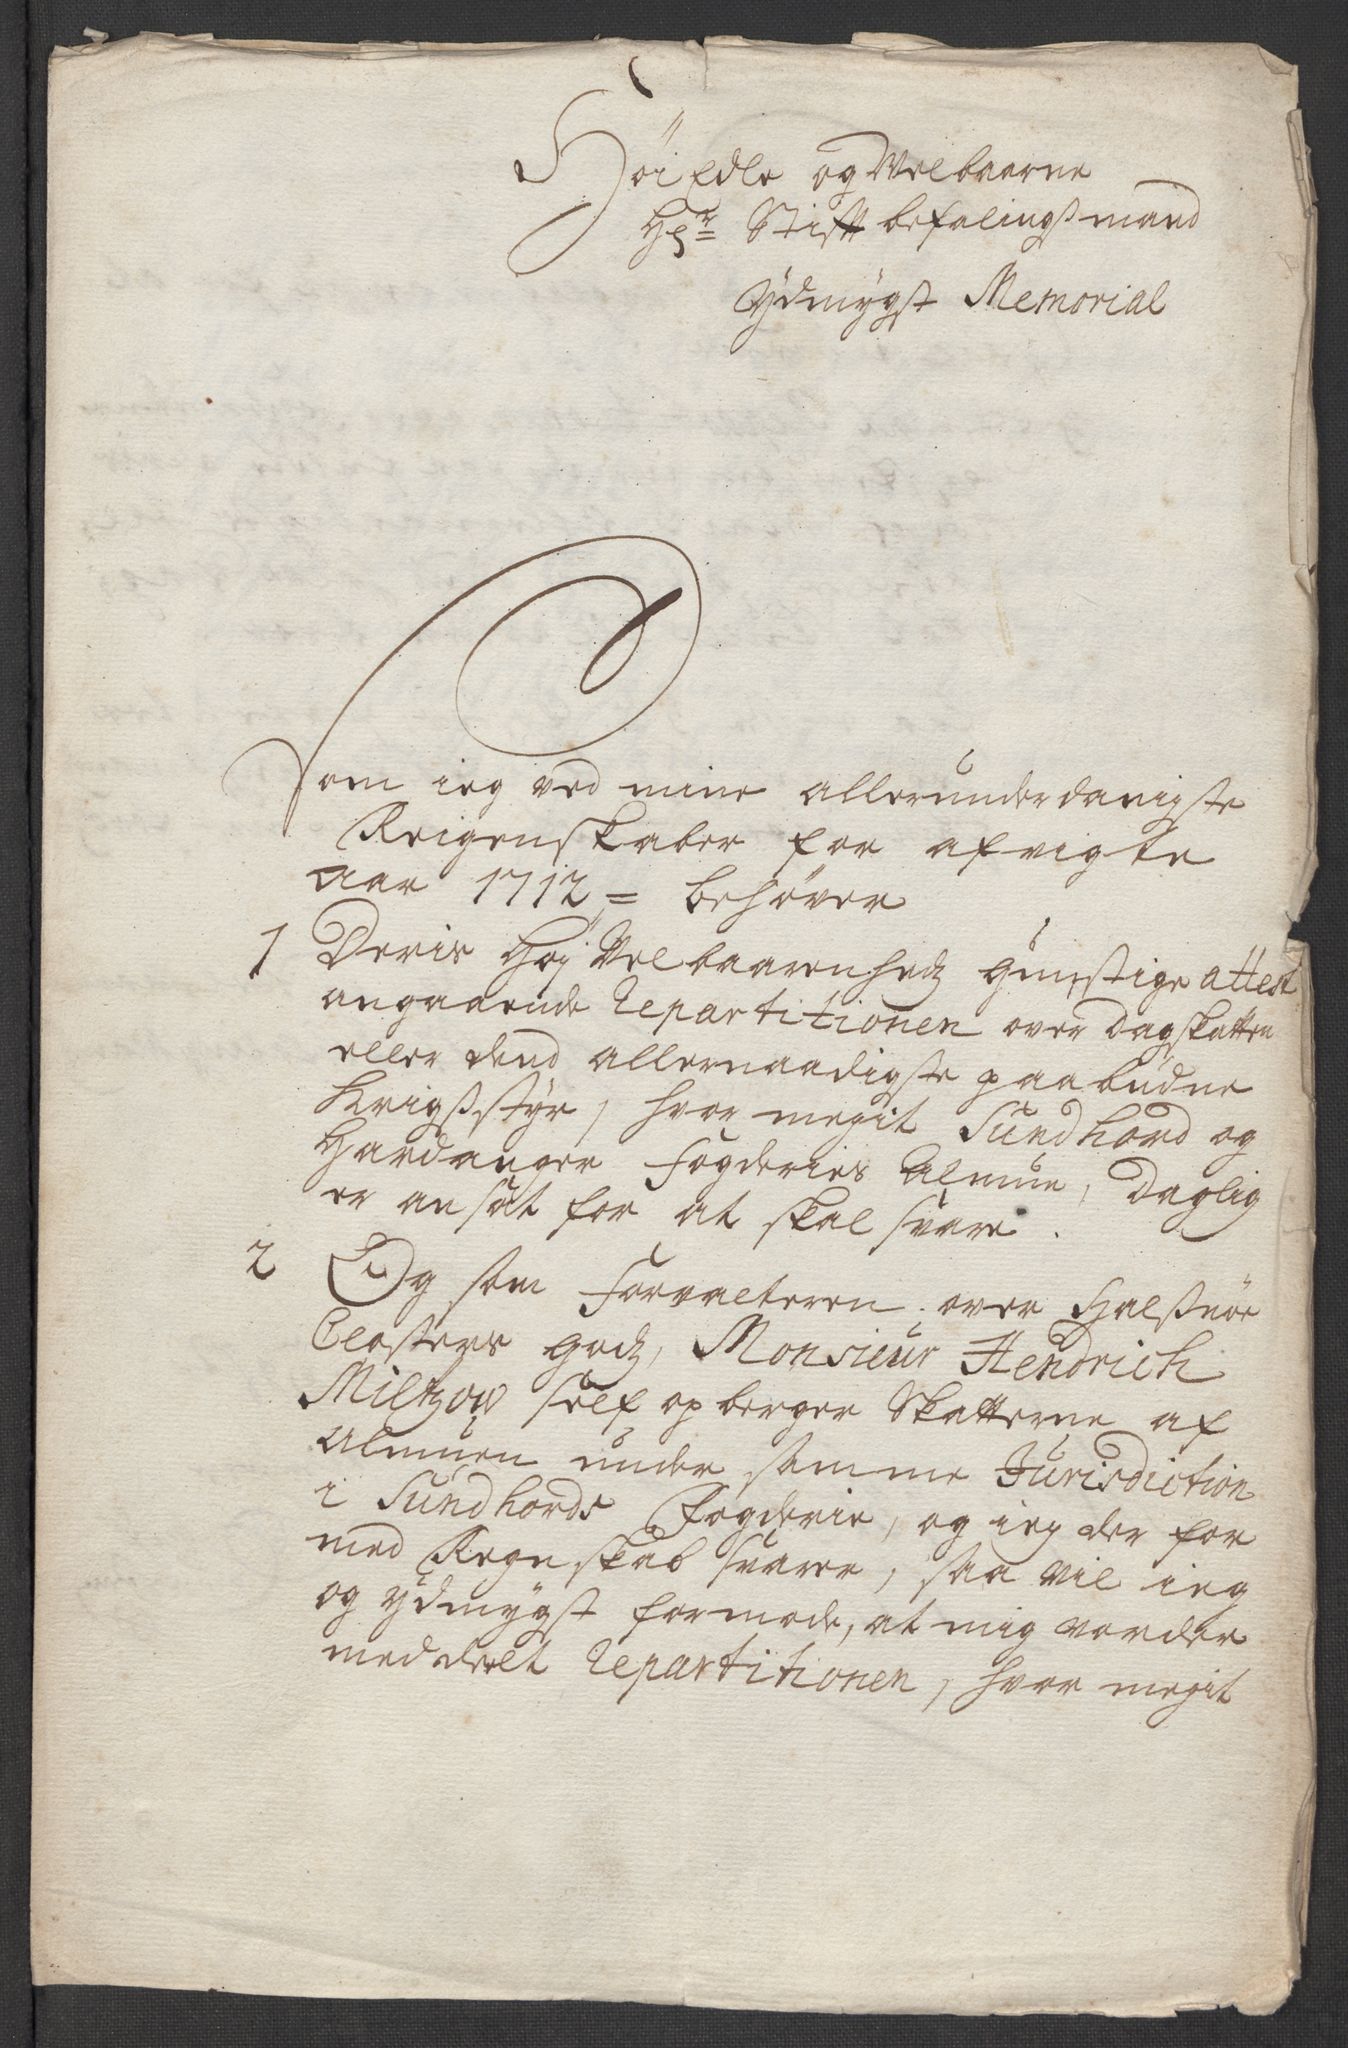 Höi Edle og Velbaarne
Hr= Stiftbefalingsmand
Ydmygst Memorial
Som ieg ved mine allerunderdanigste
Reigenskaber for afvigte
aar 1712= behøver
1 Deris Høj Velbaarenhedz gunstige attest
angaaende Repartitionen over Dagskatten
eller dend allernaadigste paabudne
Krigsstyr, hvor megit Sundhord og
Hardanger Fogderies Almue, Daglig
er ansat for at skal svare.
2 Og som Forvalteren over Halsnöe
Closters godz, Monsieur Hendrich
Miltzow self opberger Skatterne af
Almuen under samme Jurisdiction
i Sundhords Fogderie, og ieg der for
med Regnskab svarer, saa vil ieg
og ydmygst formode, at mig vorder
meddeelt Repartitionen, hvor megit